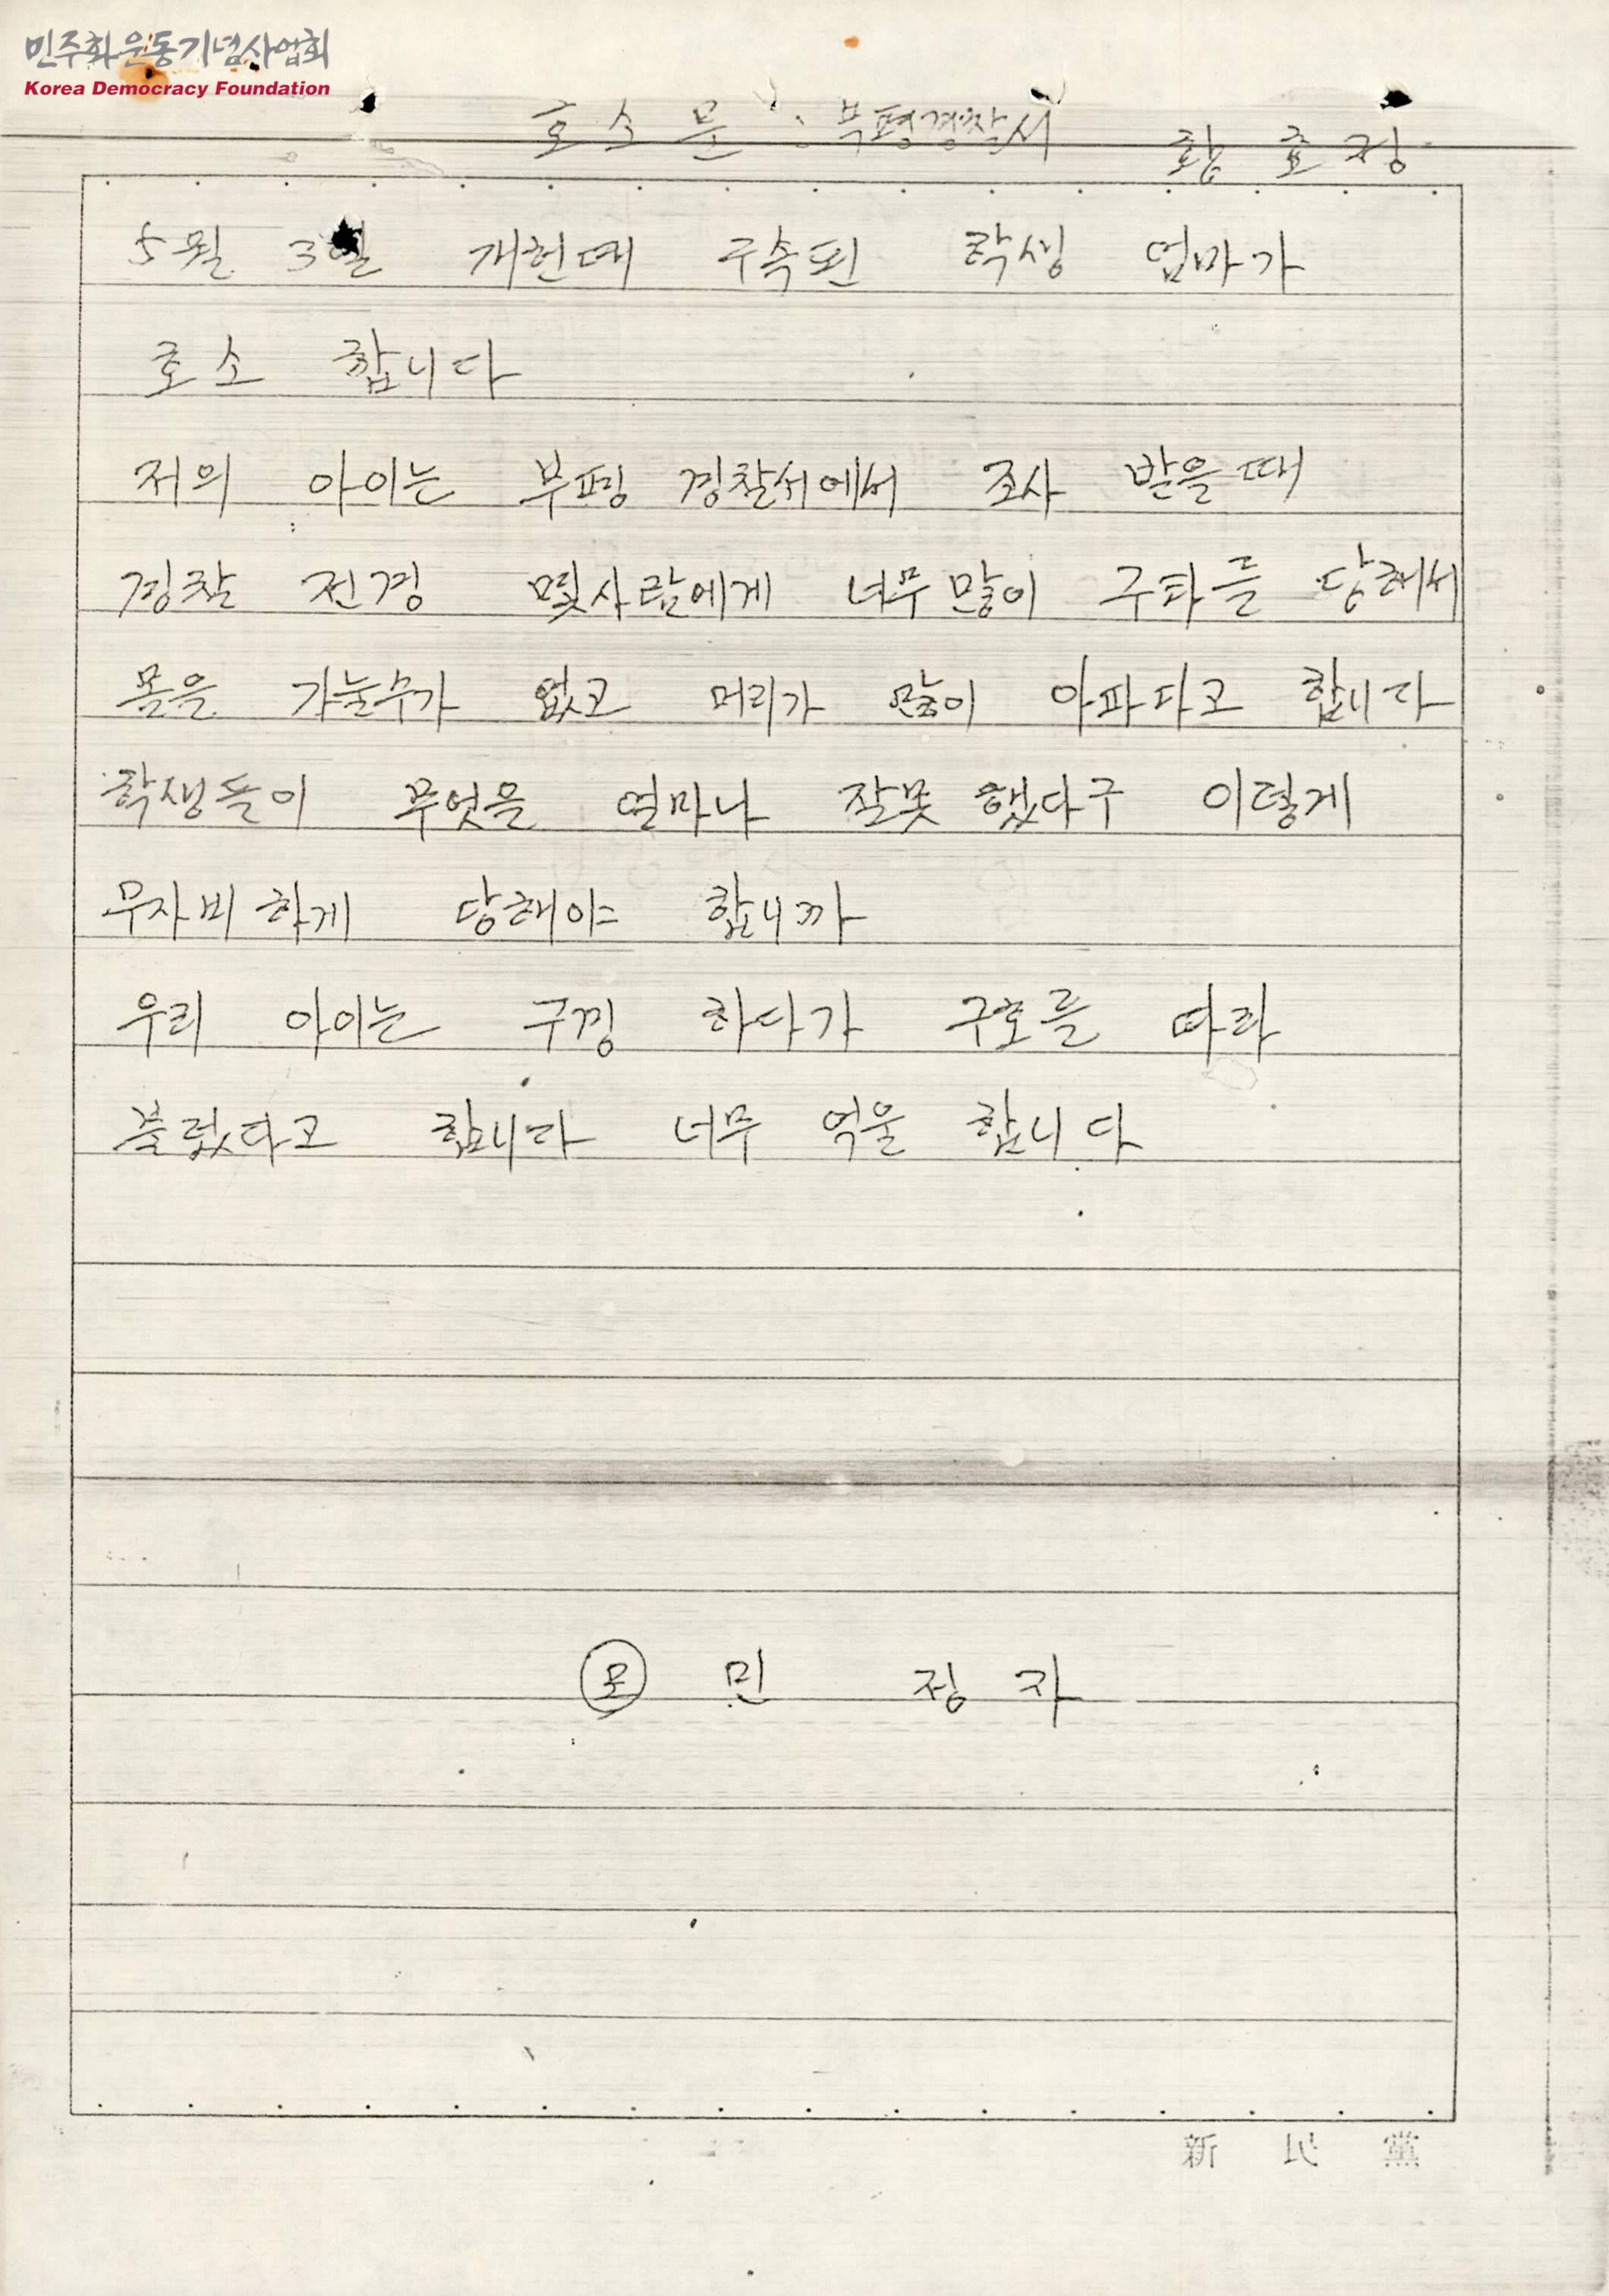 민주화운동기념사업회
Korea Democracy Foundation
호소문 : 부평경찰서
황 효 정
5월 3일 개헌때 구속된 학생 엄마가
호소 합니다
저의 아이는 부평 경찰서에서 조사 받을때
경찰 전경 몇사람에게 너무 많이 구타를 당해서
몸을 가눌수가 없고 머리가 많이 아파다고 합니다
학생들이 무엇을 얼마나 잘못 했다구 이렇게
무자비 하게 당해야 합니까
우리 아이는 구낑 하다가 구호를 따라
불렀다고 합니다 너무 억울 합니다
모 민 정 자
新 民 黨